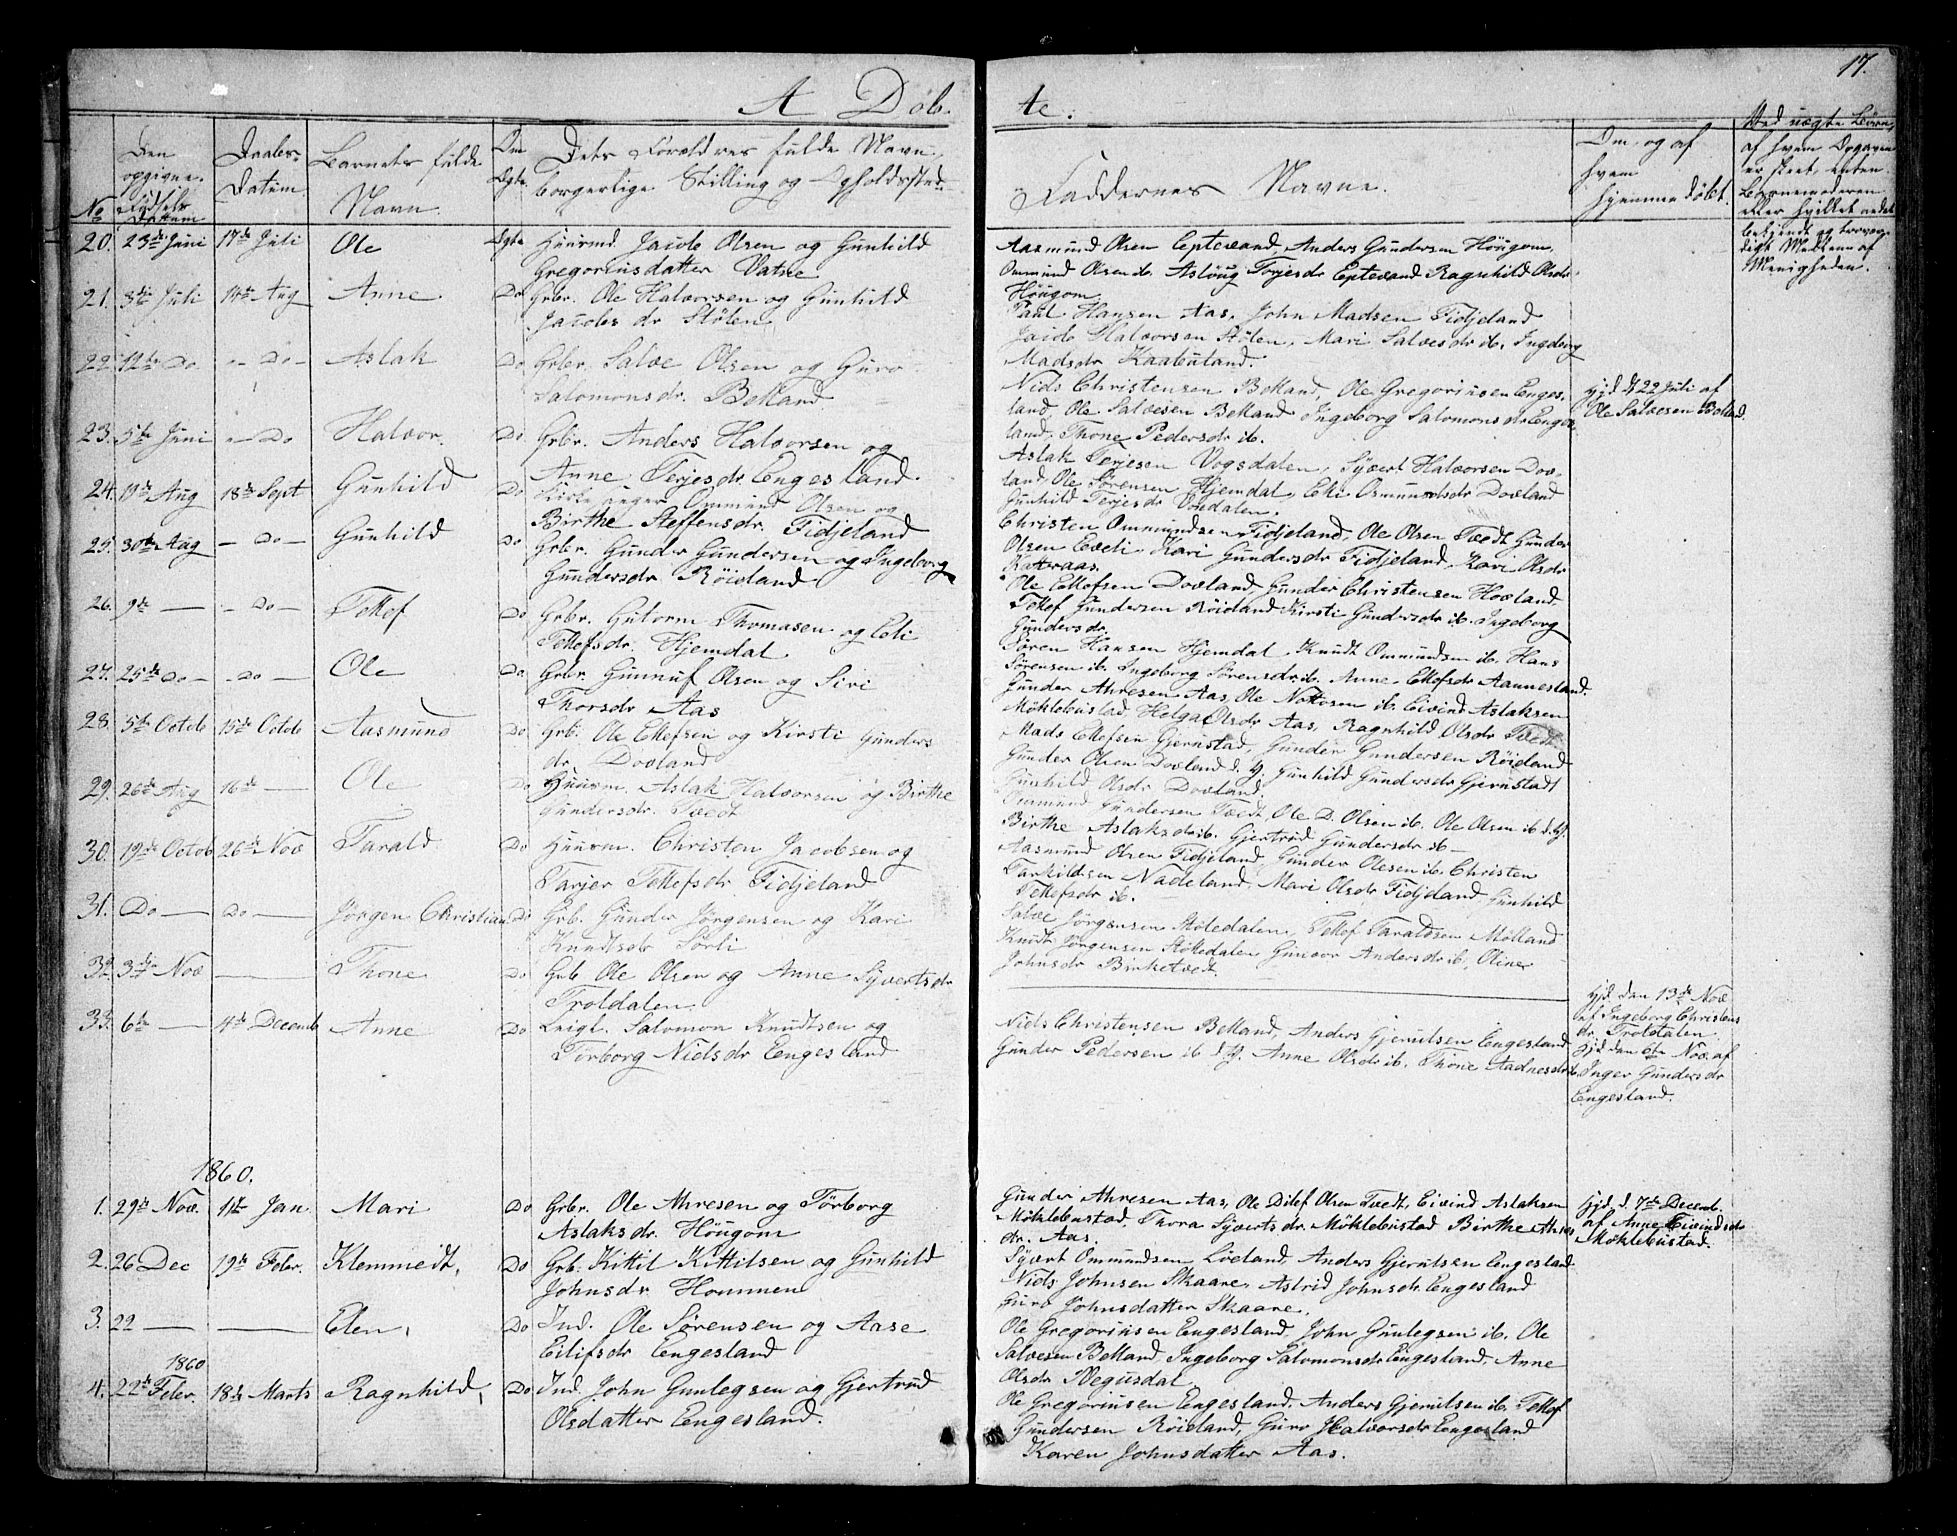 17.
A Døb-
te.
No
Den opgivne Fødsels Datum
Daabs-Datum
Barnets fulde Navn.
Om Ægte
Dets Forældres fulde Navn, borgerlige Stilling og Opholdssted
Faddernes Navne.
Om og af hvem hjemmedøbt.
Ved uægte Børn, af hvem Opgaven er skeet, enten Barnemoderen eller hvilket andet bekjendt og troværdigt Medlem af Menigheden.
20. 23de Juni 17de Juli Ole Ægte Huusmd. Jacob Olsen og Gunhild
Gregoriusdatter Vatne
Aasmund Olsen Eptevand, Anders Gundersen Høugom,
Ommund Olsen ib. Aslaug Torjesdr Eptevand Ragnhild Olsdr
Høugom
21. 3die Juli 14de Aug Anne Do Grbr. Ole Halvorsen og Gunhild
Jacobsdr Stølen
Paul Hansen Aas, John Madsen Fidjeland
Jacob Halvorsen Stølen, Mari Salvesdr ib, Ingeborg
Madsdr Kaabuland.
22. 12te Do - Do - Aslak Do Grbr. Salve Olsen og Guro
Salomonsdr. Belland
Niels Christensen Belland, Ole Gregoriusen Enges-
land, Ole Salvesen Belland Ingeborg Salomonsdr Enges-
land, Thone Pedersdr ib.
Hjd. d. 22 Juli af
Ole Salvesen Belland.
23. 5te Juni - Do Halvor. Do Grbr. Anders Halvorsen og
Anne Terjesdr Engesland.
Aslak Terjesen Vogsdalen, Syvert Halvorsen Dov-
land Ole Sørensen Hjemdal, Eli Osmundsdr Dovland
Gunhild Terjesdr Vogsdalen.
24. 19de Aug 18de Sept Gunhild Do Kirkesanger Ommund Olsen og
Birthe Steffensdr. Fidjeland
Christen Ommundsen Fidjeland, Ole Olsen Tvedt Gunder
Olsen Eveli, Kari Gundersdr Fidjeland Kari Olsdr
Rattraas.
25. 30te Aug - Do - Gunhild Do Grbr. Gunder Gundersen og Ingeborg
Gundersdr Røiland
Ole Ellefsen Dovland, Gunder Christensen Hovland,
Tellef Gundersen Røiland Kirsti Gundersdr ib. Ingeborg
Gundersdr.
26. 9de — - Do - Tellef Do Grbr. Gutorm Thomasen og Eli
Tellefsdr. Hjemdal
Søren Hansen Hjemdal, Knudt Ommundsen ib. Hans
Sørensen ib. Ingeborg Sørensdr ib. Anne Ellefsdr Aannesland.
27. 25de Do - - Do - Ole Do. Grbr. Gunnuf Olsen og Siri
Thorsdr Aas
Gunder Ahresen Aas, Ole Nottosen ib. Eivind Aslaksen
Møklebustad Helga Olsdr Aas, Ragnhild Olsdr Tvedt
28. 5te Octob 15de Octob Aasmund Do Grb. Ole Ellefsen og Kirsti Gunders
dr. Dovland
Mads Ellefsen Gjernstad, Gunder Gundersen Røiland
Gunder Olsen Dovland d. y. Gunhild Gundersdr Gjernstadt
Gunhild Olsdr Dovland.
29. 26de Aug 16de — Ole Do Huusm. Aslak Halvorsen og Birthe
Gundersdr. Tvedt
Ommund Gundersen Tvedt, Ole D. Olsen ib. Ole Olsen ib d. y.
Birthe Aslaksdr ib. Gjertrud Gundersdr ib -
30. 19de Octob 26de Nov Tarald Do Huusm. Christen Jacobsen og
Tarjer Tellefsdr Fidjeland
Aasmund Olsen Fidjeland, Gunder Olesen ib. Christen
Tarkildsen Nadeland, Mari Olsdr Fidjeland, Gunhild
Tellefsdr ib.
31. Do — Do — Jørgen Christian Do Grb. Gunder Jørgensen og Kari
Knudtsdr Sørli
Salve Jørgensen Støledalen, Tellef Taraldsen Mølland
Knudt Jørgensen Støledalen Gunvor Andersdr ib, Oline
Johnsdr Birketvedt.
32. 3die Nov — Thone Do Grb Ole Olsen og Anne Syvertsdr
Troldalen
Hjd. den 13de Nov
af Ingeborg Christens
dr. Troldalen
33. 6te — 4de Decemb Anne Do Leigl. Salomon Knudtsen og
Torborg Nielsdr Engesland
Niels Christensen Belland, Anders Gjerulsen Engesland
Gunder Pedersen ib d. y. Anne Olsdr ib. Thone Aadnesdr ib
Hjd den 6te Nov. af
Inger Gundersdr
Engesland.
1860.
1. 29de Nov. 1ste Jan. Mari Do Grbr. Ole Ahresen og Torborg
Aslaksdr. Høugom
Gunder Ahresen Aas, Ole Ditlef Olsen Tvedt, Eivind Aslaksen
Møklebustad, Thora Syvertsdr. Møklebustad Birthe Ahres
dr. Aas.
Hjd. d. 7de Decemb.
af Anne Eivindsdr
Møklebustad.
2. 26 Dec 19de Febr. Klemmedt, Do Grb. Kittil Kittilsen og Gunhild
Johnsdr Hommen
Syvert Ommundsen Lveland, Anders Gjerulsen Engesland
Niels Johnsen Skaare, Astrid Johnsdr Engesland
Guro Johnsdatter Skaare.
3. 22 — — Elen, Do Ind. Ole Sørensen og Aase
Eilifsdr Engesland
Ole Gregoriusen Engesland, John Gunlegsen ib. Ole
Salvesen Belland, Ingeborg Salomonsdr Engesland, Anne
Olsdr Vegusdal
1860
4. 22de Febr. 18de Marts Ragnhild, Do Ind. John Gunlegsen og Gjertrud
Olsdatter Engesland.
Ole Gregoriusen Engesland, Anders Gjerulsen ib. Tellef
Gundersen Røiland, Guro Halvorsdr Engesland
Karen Johnsdatter Aas.